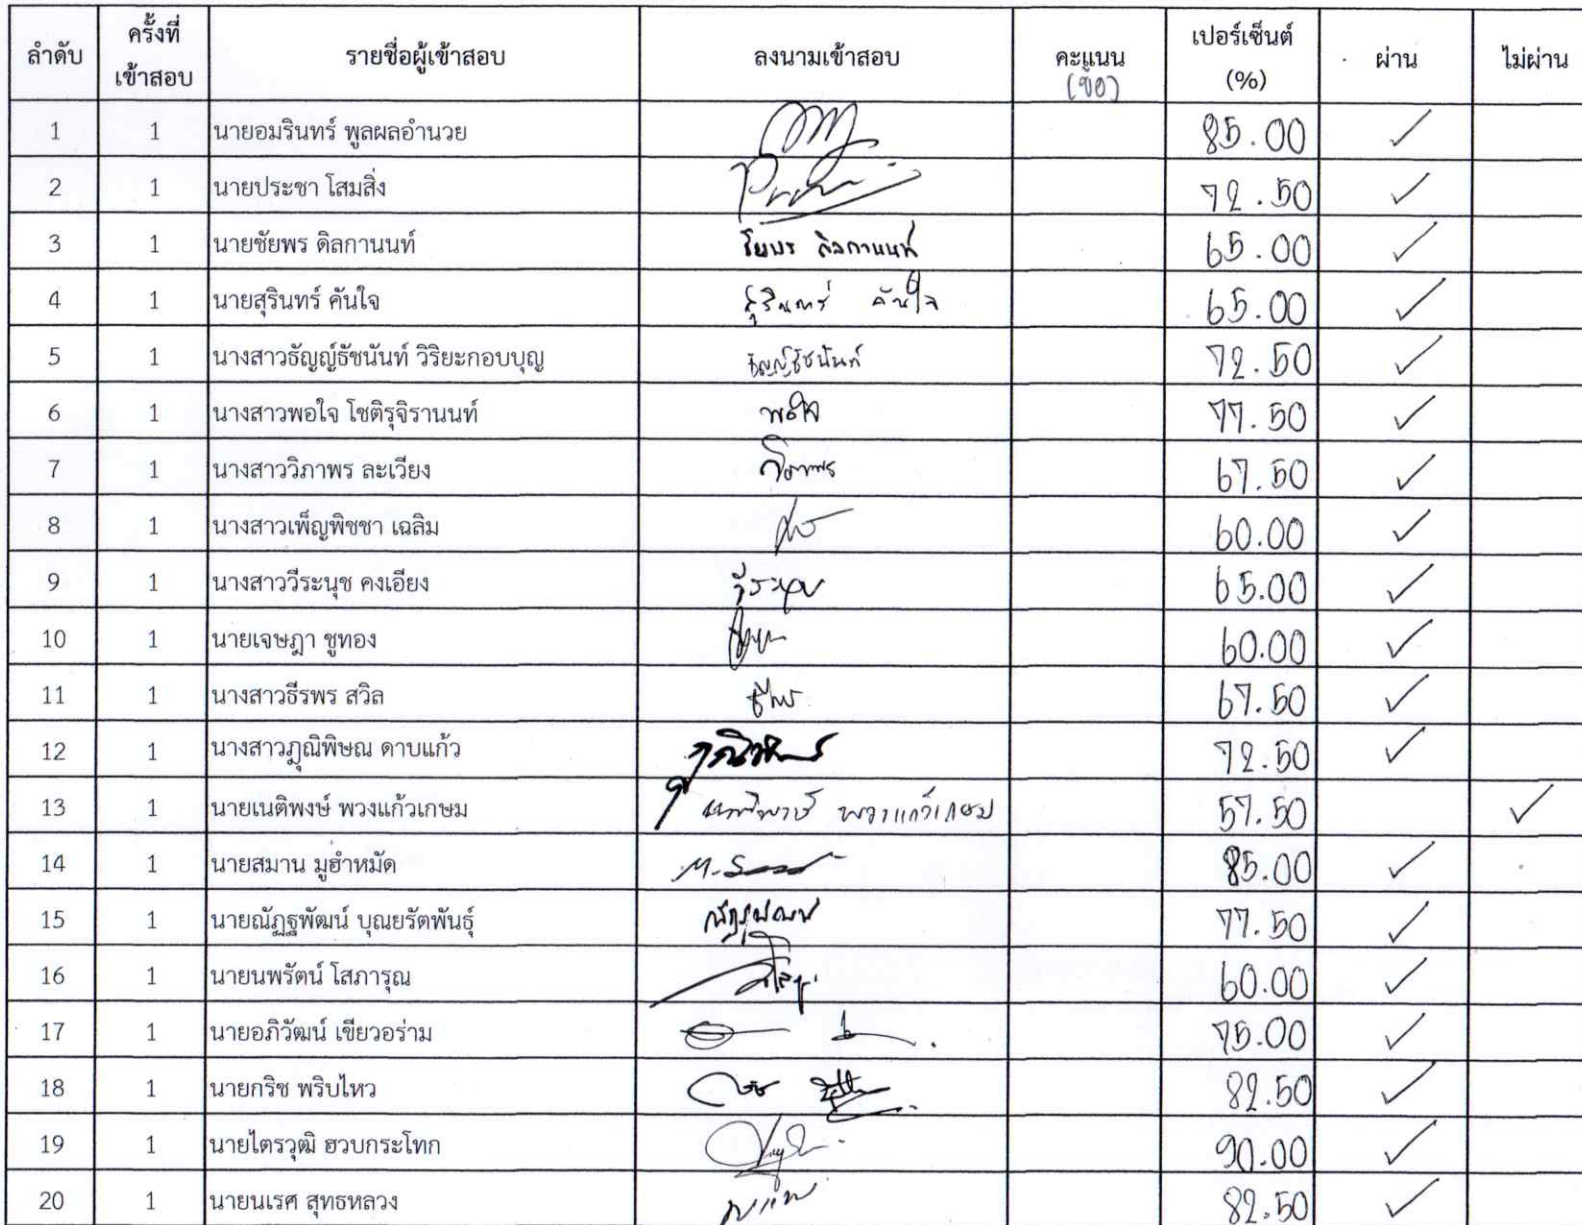 ลำดับ ครั้งที่เข้าสอบ รายชื่อผู้เข้าสอบ ลงนามเข้าสอบ คะแนน (ข้อ) เปอร์เซ็นต์ (%) ผ่าน ไม่ผ่าน
1 1 นายอมรินทร์ พูลผลอำนวย 85.00 ✓
2 1 นายประชา โสมสิ่ง 72.50 ✓
3 1 นายชัยพร ดิลกานนท์ ชัยพร ดิลกานนท์ 65.00 ✓
4 1 นายสุรินทร์ คันใจ สุรินทร์ คันใจ 65.00 ✓
5 1 นางสาวธัญญ์ธัชนันท์ วิริยะกอบบุญ ธัญญ์ธัชนันท์ 72.50 ✓
6 1 นางสาวพอใจ โชติรุจิรานนท์ พอใจ 77.50 ✓
7 1 นางสาววิภาพร ละเวียง วิภาพร 67.50 ✓
8 1 นางสาวเพ็ญพิชชา เฉลิม 60.00 ✓
9 1 นางสาววีระนุช คงเอียง วีระนุช 65.00 ✓
10 1 นายเจษฎา ชูทอง 60.00 ✓
11 1 นางสาวธีรพร สวิล 67.50 ✓
12 1 นางสาวภูณิพิษณ ดาบแก้ว 72.50 ✓
13 1 นายเนติพงษ์ พวงแก้วเกษม เนติพงษ์ พวงแก้วเกษม 57.50 ✓
14 1 นายสมาน มูฮำหมัด 85.00 ✓
15 1 นายณัฏฐพัฒน์ บุณยรัตพันธุ์ 77.50 ✓
16 1 นายนพรัตน์ โสภารุณ 60.00 ✓
17 1 นายอภิวัฒน์ เขียวอร่าม 75.00 ✓
18 1 นายกริช พริบไหว 82.50 ✓
19 1 นายไตรวุฒิ ฮวบกระโทก 90.00 ✓
20 1 นายนเรศ สุทธหลวง 82.50 ✓